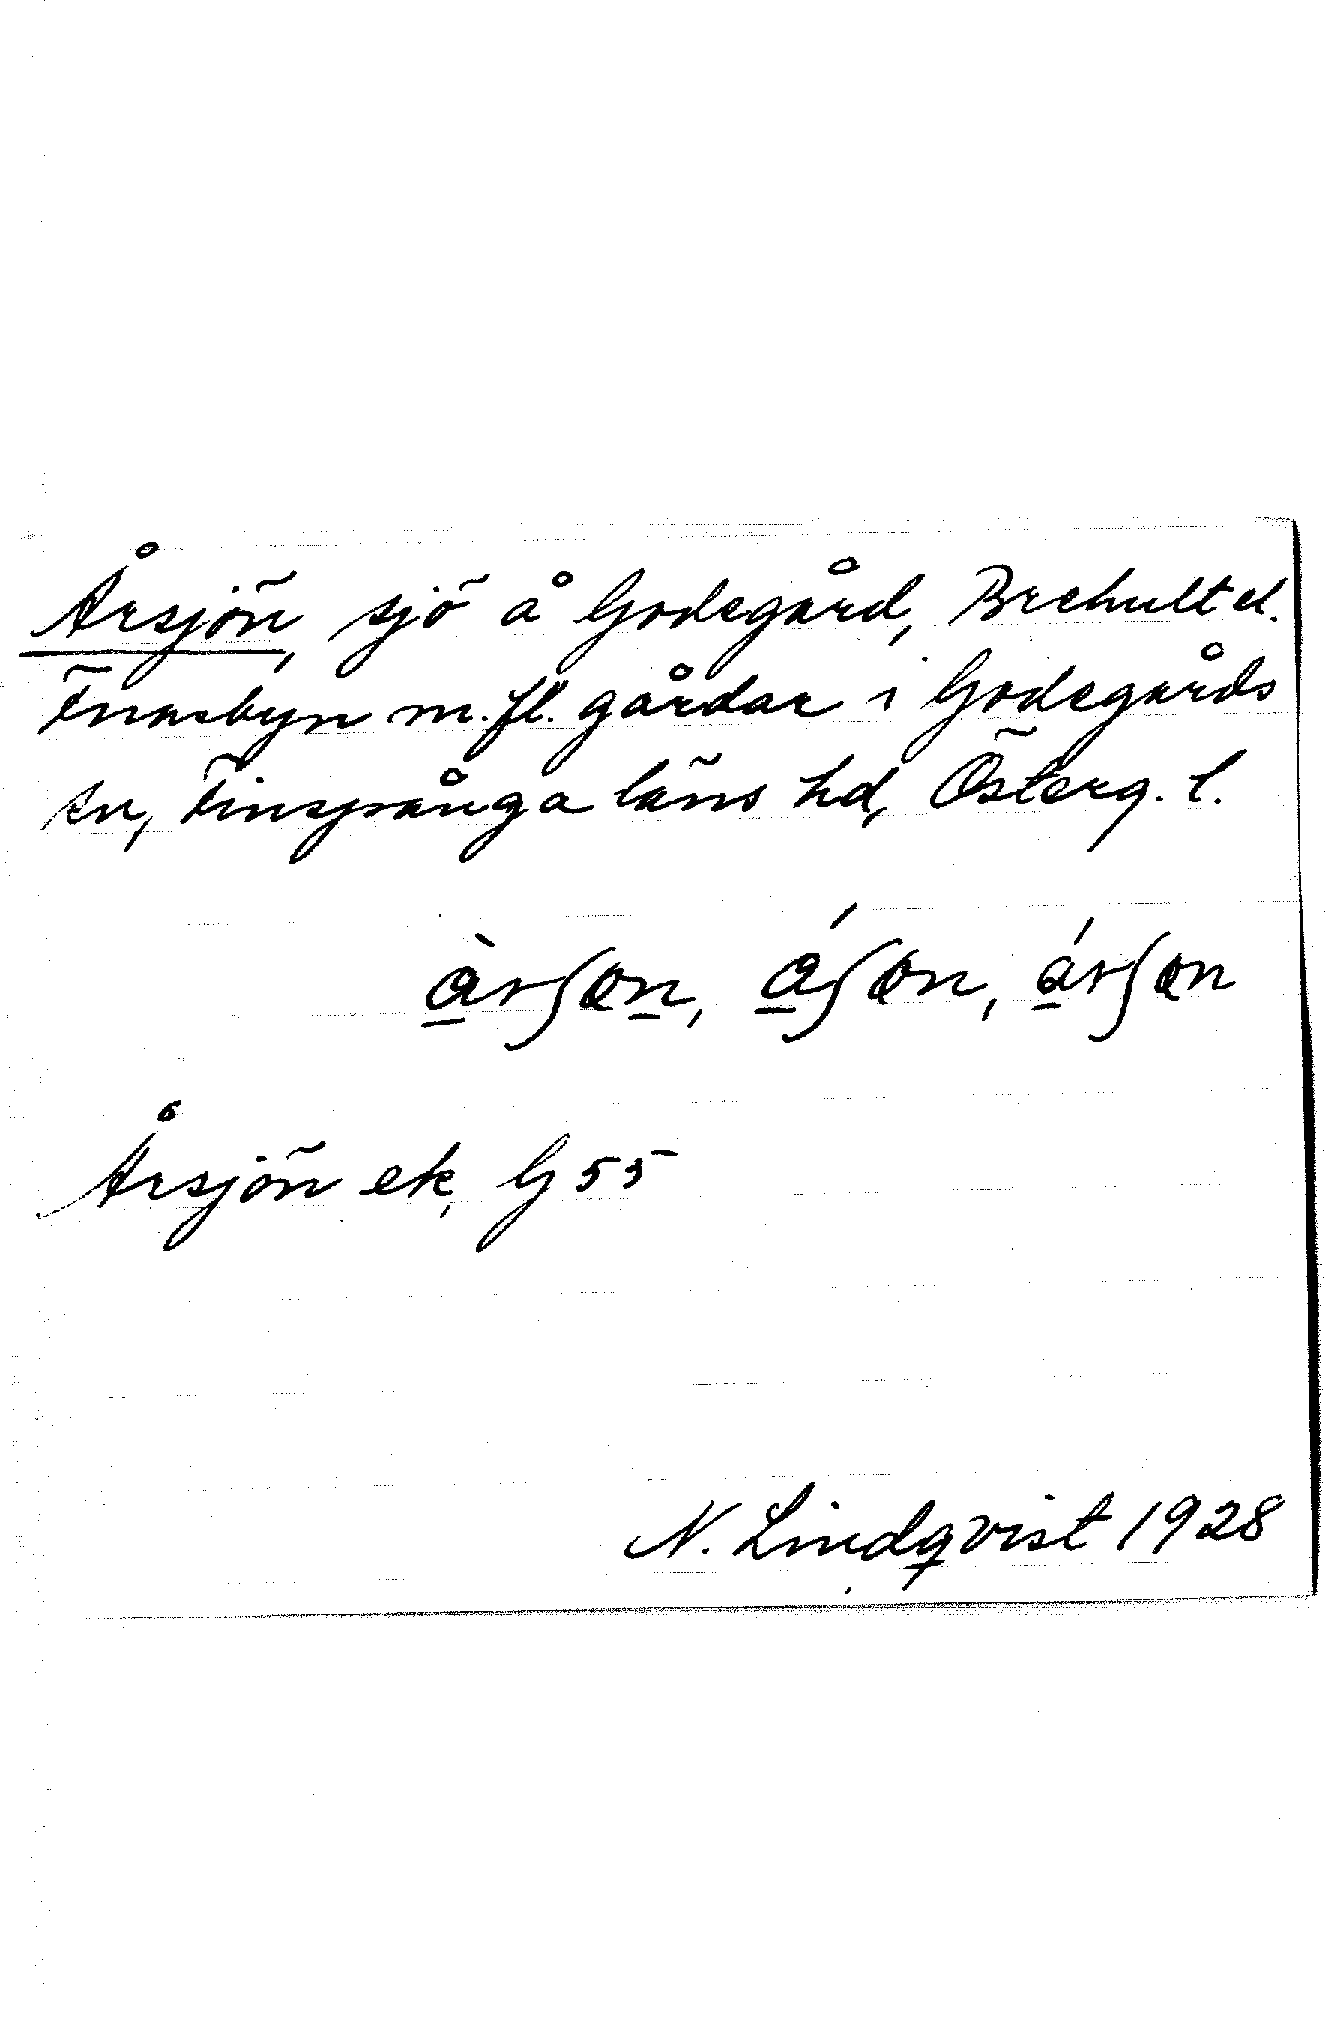 Årsjön, sjö å Godegård, Brehult el.
Finnsbyn m.fl. gårdar i Godegårds
sn, Finspånga läns hd, Österg. l.
Årsjön ek, G 55
N. Lindqvist 1928